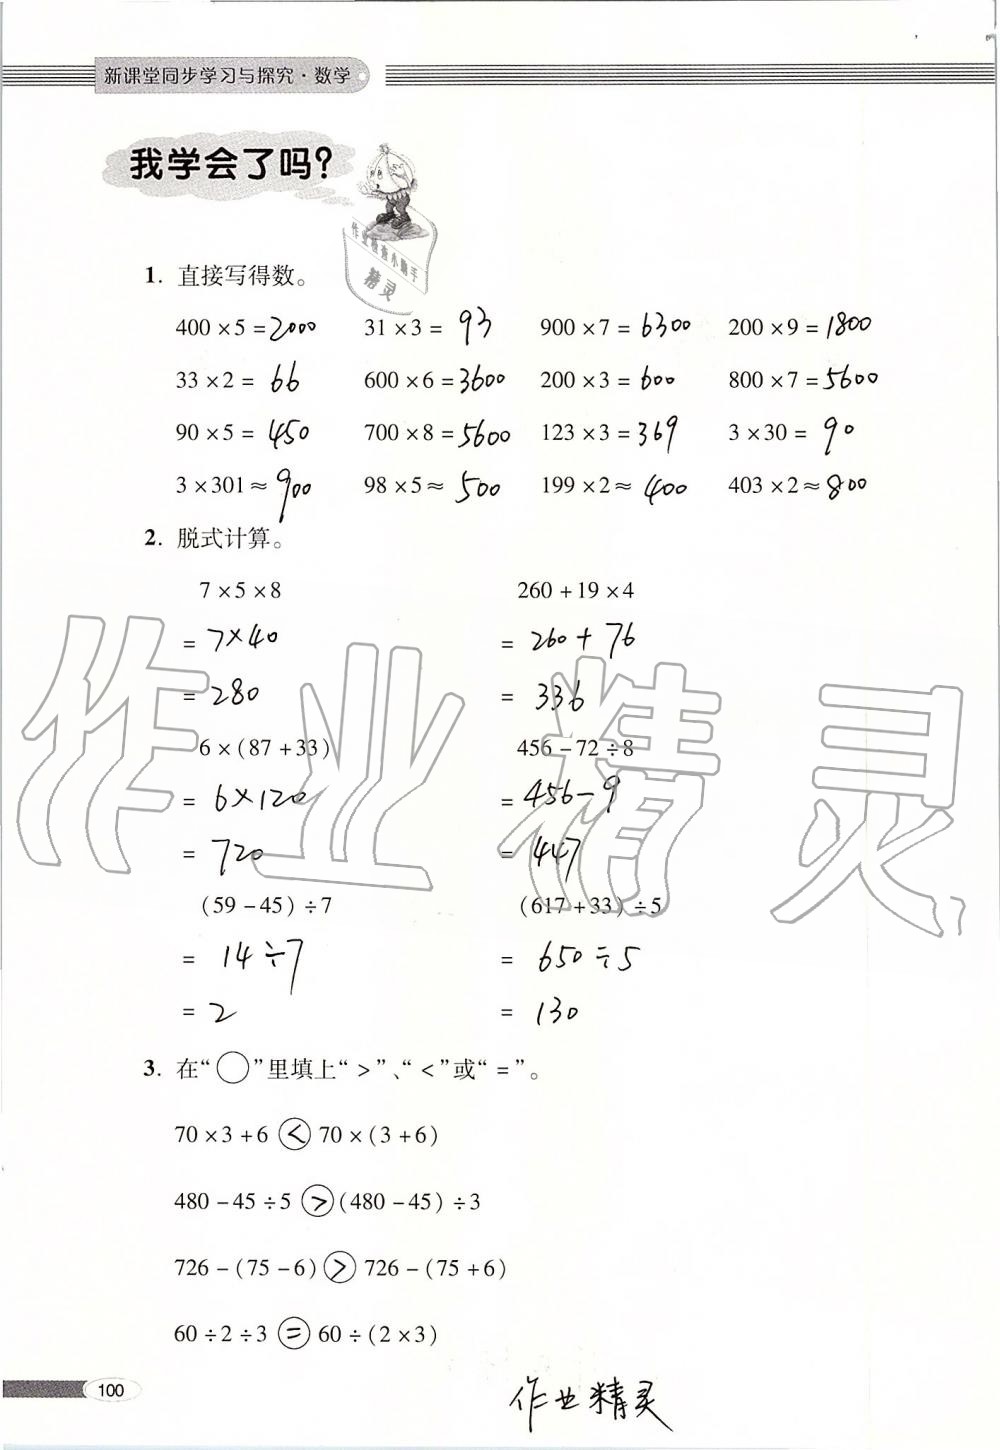 新课堂同步学习与探究·数学
我学会了吗?
作业检查小助手
精灵
1. 直接写得数。
400×5=2000 31×3=93 900×7=6300 200×9=1800
33×2=66 600×6=3600 200×3=600 800×7=5600
90×5=450 700×8=5600 123×3=369 3×30=90
3×301≈900 98×5≈500 199×2≈400 403×2≈800
2. 脱式计算。
7×5×8 260+19×4
=7×40 =260+76
=280 =336
6×(87+33) 456-72÷8
=6×120 =456-9
=720 =447
(59-45)÷7 (617+33)÷5
=14÷7 =650÷5
=2 =130
作业精灵
3. 在“○”里填上“>”、“<”或“=”。
70×3+6<70×(3+6)
480-45÷5>(480-45)÷3
726-(75-6)>726-(75+6)
60÷2÷3=60÷(2×3)
100
作业精灵